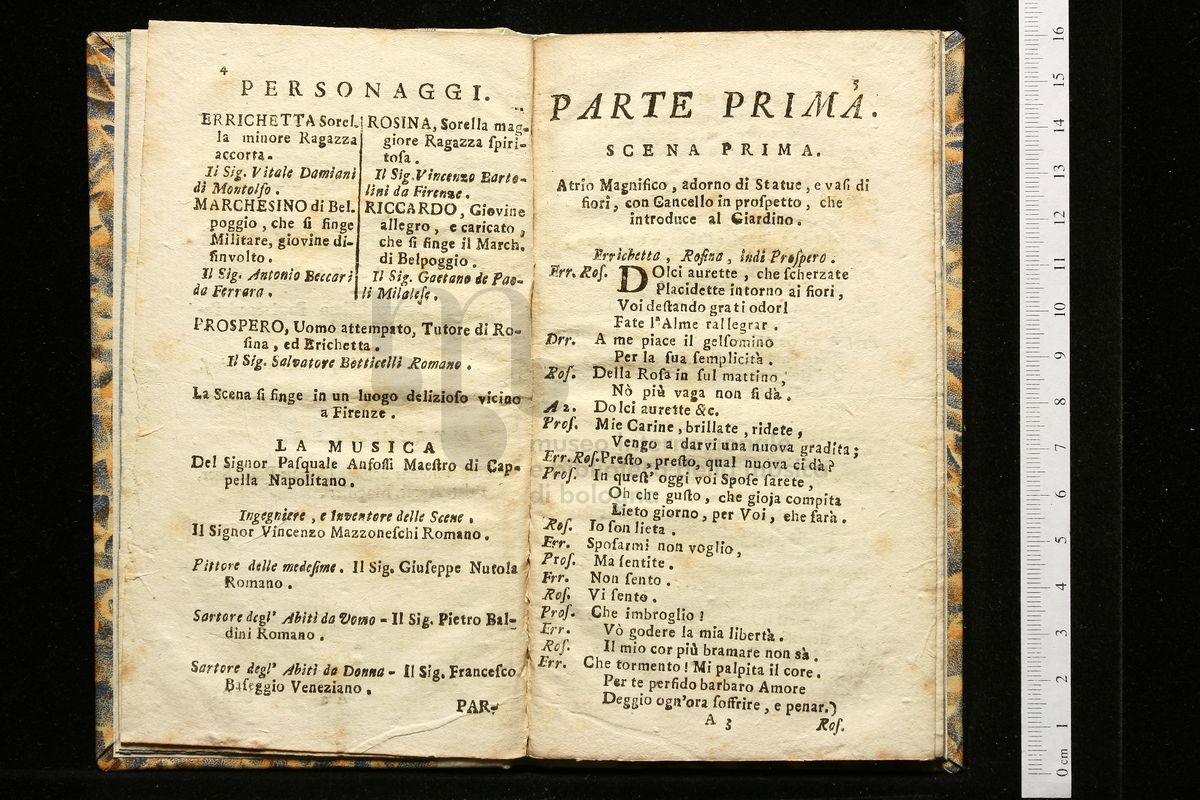 4
PERSONAGGI.
ERRICHETTA Sorel-
la minore Ragazza
accorta.
Il Sig. Vitale Damiani
di Montolfo.
MARCHESINO di Bel-
poggio, che si finge
Militare, giovine di-
sinvolto.
Il Sig. Antonio Beccari
da Ferrara.
ROSINA, Sorella mag-
giore Ragazza spiri-
tosa.
Il Sig. Vincenzo Barto-
lini da Firenze.
RICCARDO, Giovine
allegro, e caricato,
che si finge il March.
di Belpoggio.
Il Sig. Gaetano de Pao-
li Milalese.
PROSPERO, Uomo attempato, Tutore di Ro-
sina, ed Erichetta.
Il Sig. Salvatore Botticelli Romano.
La Scena si finge in un luogo delizioso vicino
a Firenze.
LA MUSICA
Del Signor Pasquale Anfossi Maestro di Cap-
pella Napolitano.
Ingegniere, e Inventore delle Scene.
Il Signor Vincenzo Mazzoneschi Romano.
Pittore delle medesime. Il Sig. Giuseppe Nutola
Romano.
Sartore degl' Abiti da Uomo - Il Sig. Pietro Bal-
dini Romano.
Sartore degl' Abiti da Donna - Il Sig. Francesco
Baseggio Veneziano.
PAR-
5
PARTE PRIMA.
SCENA PRIMA.
Atrio Magnifico, adorno di Statue, e vasi di
fiori, con Cancello in prospetto, che
introduce al Giardino.
Errichetta, Rosina, indi Prospero.
Err. Ros. DOlci aurette, che scherzate
Placidette intorno ai fiori,
Voi destando grati odori
Fate l'Alme rallegrar.
Drr. A me piace il gelsomino
Per la sua semplicità.
Ros. Della Rosa in sul mattino,
Nò più vaga non si dà.
A 2. Dolci aurette &c.
Pros. Mie Carine, brillate, ridete,
Vengo a darvi una nuova gradita;
Err. Ros. Presto, presto, qual nuova ci dà?
Pros. In quest' oggi voi Spose sarete,
Oh che gusto, che gioja compita
Lieto giorno, per Voi, che sarà.
Ros. Io son lieta.
Err. Sposarmi non voglio,
Pros. Ma sentite.
Err. Non sento.
Ros. Vi sento.
Pros. Che imbroglio!
Err. Vò godere la mia libertà.
Ros. Il mio cor più bramare non sà.
Err. Che tormento! Mi palpita il core.
Per te perfido barbaro Amore
Deggio ogn'ora soffrire, e penar.)
A 3
Ros.
0 cm 1 2 3 4 5 6 7 8 9 10 11 12 13 14 15 16